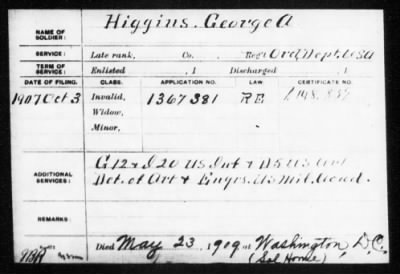 NAME OF SOLDIER: Higgins, George A
SERVICE: Late rank, Co. Reg't Ord. Dept. U S A
TERM OF SERVICE: Enlisted , 1 Discharged , 1
DATE OF FILING. CLASS. APPLICATION NO. LAW. CERTIFICATE NO.
1907 Oct 3 Invalid, 1367381 R E
Widow,
Minor,
ADDITIONAL SERVICES: G 12 & D 20 U S Inf & D 5 U S Art
Det. of Art & Engrs. U S Mil. Acad.
REMARKS:
Died May 23, 1919 at Washington, D.C.
(Sol Home)